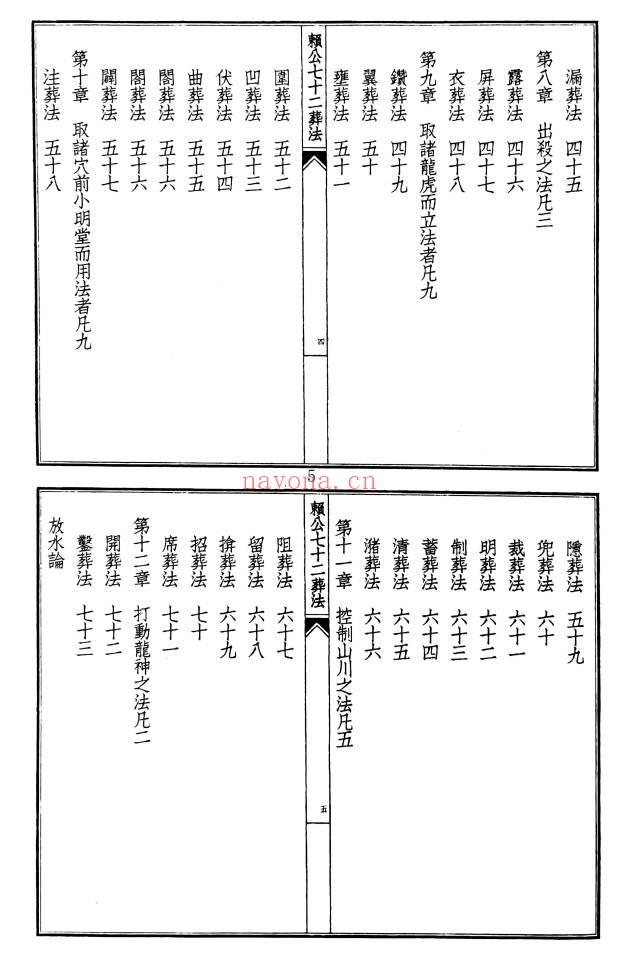 漏葬法 四十五
第八章 出殺之法凡三
露葬法 四十六
屏葬法 四十七
衣葬法 四十八
第九章 取諸龍虎而立法者凡九
鑽葬法 四十九
翼葬法 五十
壅葬法 五十一
賴公七十二葬法
四
圍葬法 五十二
凹葬法 五十三
伏葬法 五十四
曲葬法 五十五
閤葬法 五十六
閣葬法 五十六
闢葬法 五十七
第十章 取諸穴前小明堂而用法者凡九
注葬法 五十八
5
navona.cn
隱葬法 五十九
兜葬法 六十
裁葬法 六十一
明葬法 六十二
制葬法 六十三
蓄葬法 六十四
清葬法 六十五
瀦葬法 六十六
第十一章 控制山川之法凡五
賴公七十二葬法
五
阻葬法 六十七
留葬法 六十八
揜葬法 六十九
招葬法 七十
席葬法 七十一
第十二章 打動龍神之法凡二
開葬法 七十二
鑿葬法 七十三
放水論